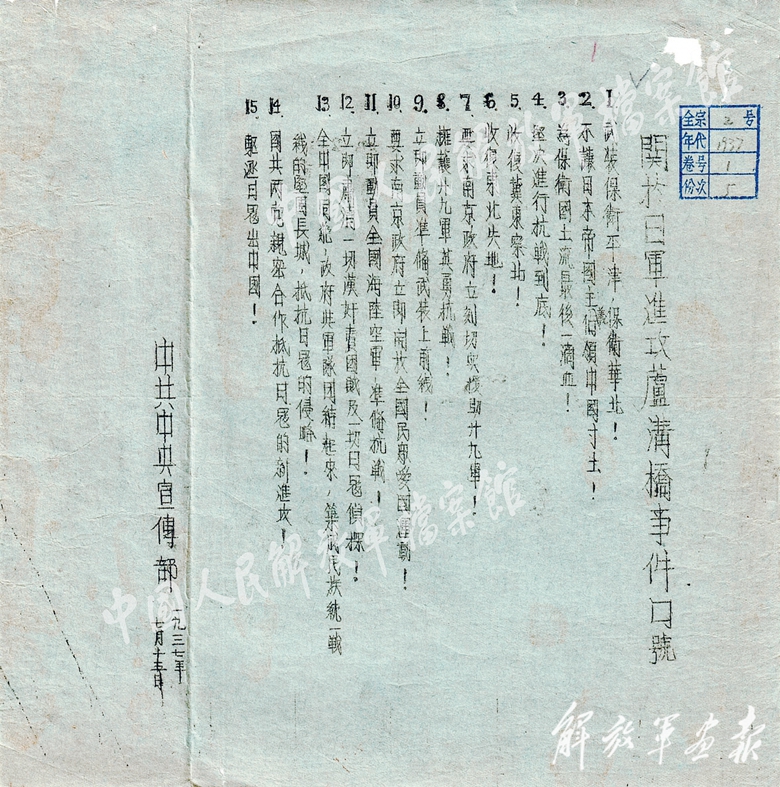 關於日軍進攻蘆溝橋事件口號
1. 武裝保衛平、津,保衛華北!
2. 不讓日本帝國主義佔領中國寸土!
3. 為保衛國土流最後一滴血!
4. 堅决進行抗戰到底!
5. 收復冀東察北!
6. 收復東北失地!
7. 要求南京政府立刻切實援助廿九軍!
8. 擁護廿九軍英勇抗戰!
9. 立即動員準俻武裝上前綫!
10. 要求南京政府立即開放全國民眾愛国運動!
11. 立即動員全國海陸空軍,準俻抗戰!
12. 立即肅清一切漢奸賣國賊及一切日冦偵探!
13. 全中國同胞,政府與軍隊团結起來,築成民族統一戰
綫的堅固長城,抵抗日冦的侵略!
14. 國共两党親密合作抵抗日冦的新進攻!
15. 驅逐日冦出中國!
中共中央宣傳部
一九三七年
七月十五日
全宗 2 号
年代 1937
卷号 1
份次 5
中國人民解放軍檔案館
中國人民解放軍檔案館
解放军画报